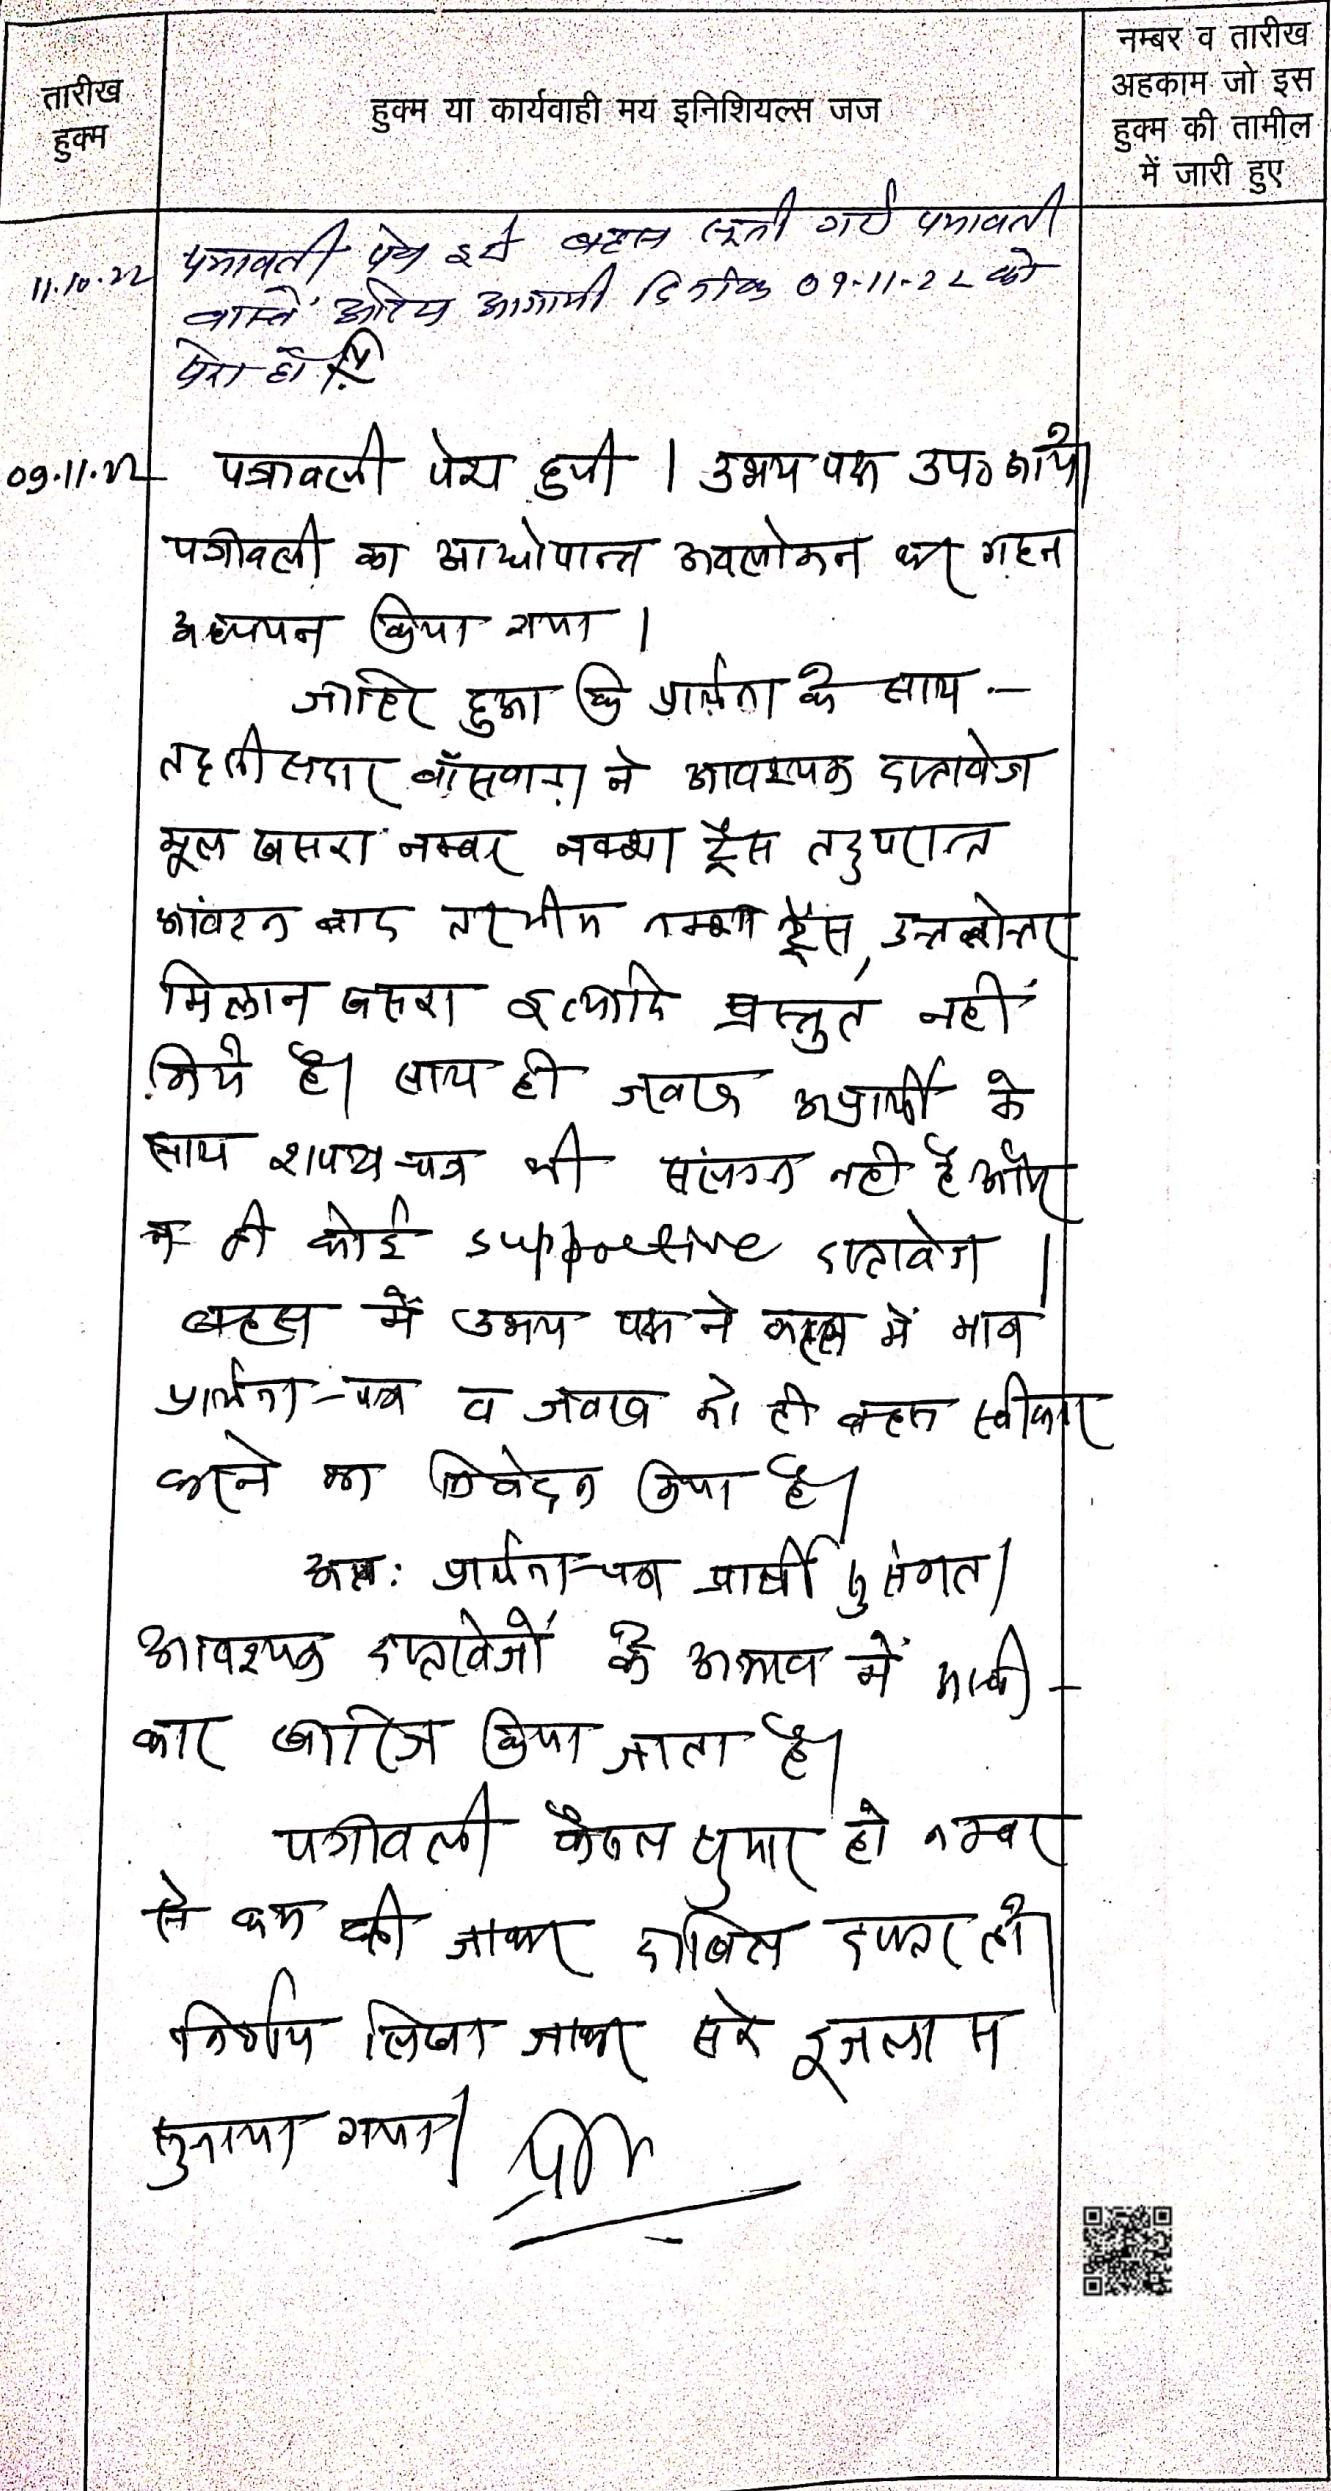 तारीख
हुक्म
हुक्म या कार्यवाही मय इनिशियल्स जज
नम्बर व तारीख
अहकाम जो इस
हुक्म की तामील
में जारी हुए
11.10.22 पत्रावली पेश हुई बहस सुनी गयी पत्रावली
वास्ते आदेश आगामी दिनांक 09-11-22 को
पेश हो
09.11.22 पत्रावली पेश हुयी । उभय पक्ष उप०
पत्रावली का आद्योपान्त अवलोकन कर गहन
अध्ययन किया गया ।
जाहिर हुआ कि प्रार्थना के साथ -
तहसीलदार बाँसवाड़ा ने आवश्यक दस्तावेज
मूल खसरा नम्बर नक्शा ट्रैस तदुपरान्त
आवंटन बाद तरमीम नक्शा ट्रैस,
मिलान खसरा इत्यादि प्रस्तुत नहीं
किये है। साथ ही जवाब अप्रार्थी के
साथ शपथ-पत्र भी संलग्न नही है और
न ही कोई supportive दस्तावेज ।
बहस में उभय पक्ष ने बहस में मात्र
प्रार्थना-पत्र व जवाब को ही बहस स्वीकार
करने का निवेदन किया है।
अतः प्रार्थना-पत्र प्रार्थी सुसंगत/
आवश्यक दस्तावेजों के अभाव में
कार खारिज किया जाता है।
पत्रावली फैसल शुमार हो नम्बर
से कम की जाकर दाखिल दफ्तर हो।
निर्णय लिखा जाकर सरे इजलास
सुनाया गया।